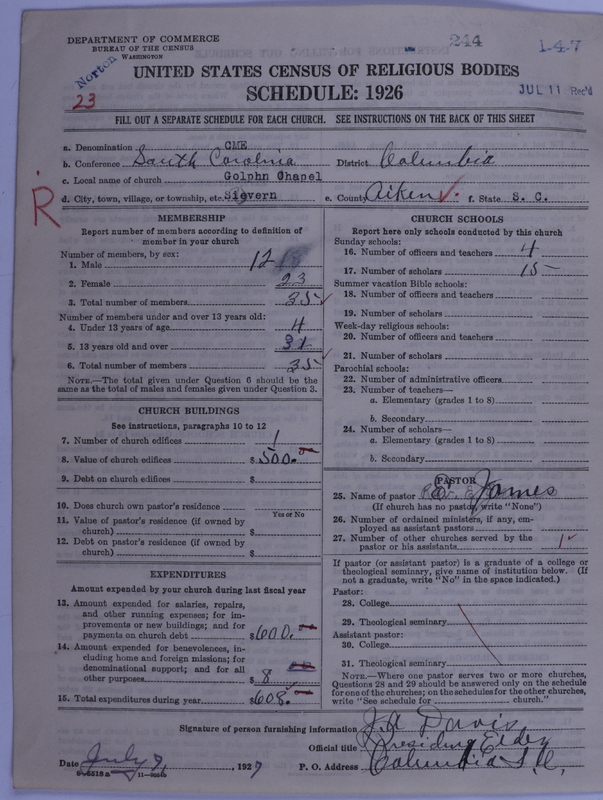 DEPARTMENT OF COMMERCE
BUREAU OF THE CENSUS
WASHINGTON
Norton
23
244
1-4-7
JUL 11 Rec'd
UNITED STATES CENSUS OF RELIGIOUS BODIES
SCHEDULE: 1926
FILL OUT A SEPARATE SCHEDULE FOR EACH CHURCH. SEE INSTRUCTIONS ON THE BACK OF THIS SHEET
a. Denomination CME
b. Conference South Carolina District Columbia
c. Local name of church Golphn Chapel
d. City, town, village, or township, etc. Sievern e. County Aiken f. State S. C.
R
MEMBERSHIP
Report number of members according to definition of
member in your church
Number of members, by sex:
1. Male 12
2. Female 23
3. Total number of members 35
Number of members under and over 13 years old:
4. Under 13 years of age 4
5. 13 years old and over 31
6. Total number of members 35
NOTE.—The total given under Question 6 should be the
same as the total of males and females given under Question 3.
CHURCH BUILDINGS
See instructions, paragraphs 10 to 12
7. Number of church edifices 1
8. Value of church edifices $500.
9. Debt on church edifices $
10. Does church own pastor's residence
Yes or No
11. Value of pastor's residence (if owned by
church) $
12. Debt on pastor's residence (if owned by
church) $
EXPENDITURES
Amount expended by your church during last fiscal year
13. Amount expended for salaries, repairs,
and other running expenses; for im-
provements or new buildings; and for
payments on church debt $600.
14. Amount expended for benevolences, in-
cluding home and foreign missions; for
denominational support; and for all
other purposes $ 8
15. Total expenditures during year $608.
CHURCH SCHOOLS
Report here only schools conducted by this church
Sunday schools:
16. Number of officers and teachers 4
17. Number of scholars 15
Summer vacation Bible schools:
18. Number of officers and teachers
19. Number of scholars
Week-day religious schools:
20. Number of officers and teachers
21. Number of scholars
Parochial schools:
22. Number of administrative officers
23. Number of teachers—
a. Elementary (grades 1 to 8)
b. Secondary
24. Number of scholars—
a. Elementary (grades 1 to 8)
b. Secondary
PASTOR
25. Name of pastor E James
(If church has no pastor, write "None")
26. Number of ordained ministers, if any, em-
ployed as assistant pastors
27. Number of other churches served by the
pastor or his assistants 1
If pastor (or assistant pastor) is a graduate of a college or
theological seminary, give name of institution below. (If
not a graduate, write "No" in the space indicated.)
Pastor:
28. College
29. Theological seminary
Assistant pastor:
30. College
31. Theological seminary
NOTE.—Where one pastor serves two or more churches,
Questions 28 and 29 should be answered only on the schedule
for one of the churches; on the schedules for the other churches,
write "See schedule for church."
Signature of person furnishing information J A Davis
Official title Presiding Elder
Date July 7, 1927 P. O. Address Columbia S.C.